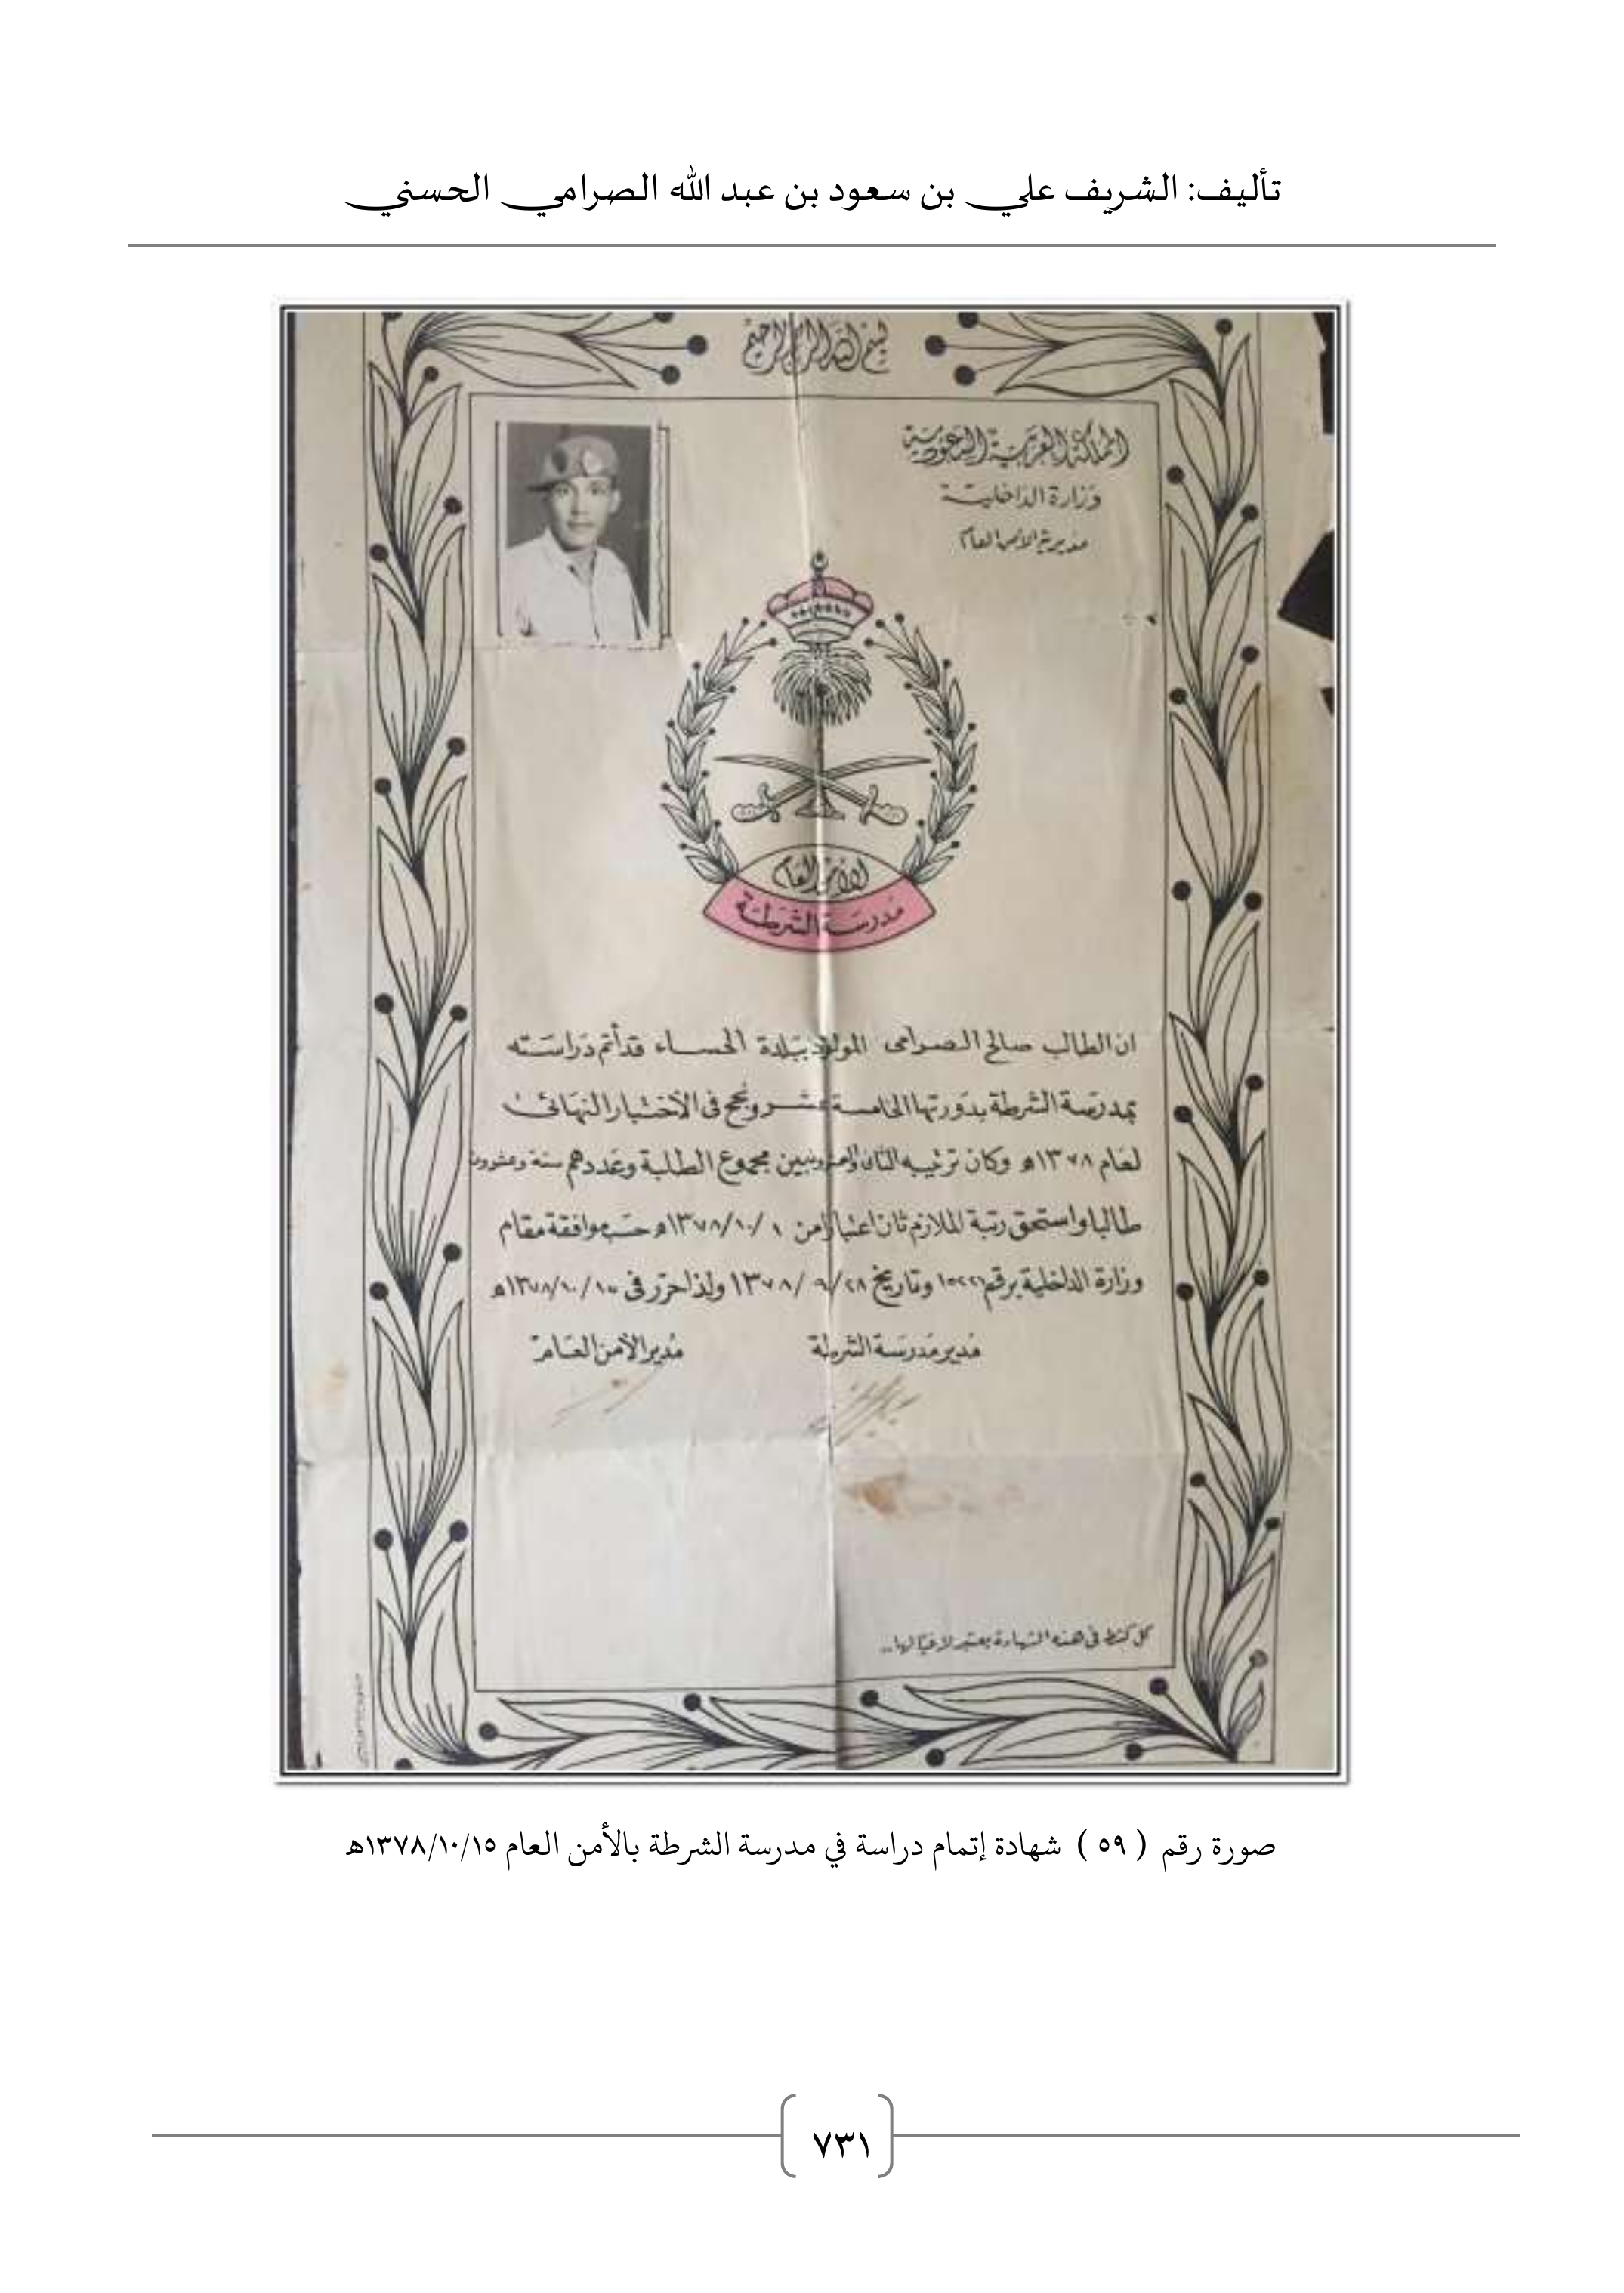 تأليف: الشريف علي بن سعود بن عبد الله الصرامي الحسني
بسم الله الرحمن الرحيم
المملكة العربية السعودية
وزارة الداخلية
مديرية الأمن العام
الأمن العام
مدرسة الشرطة
ان الطالب صالح الصرامى المولود ببلدة الحساء قد أتم دراسته
بمدرسة الشرطة بدورتها الخامسة عشر ونجح فى الأختبار النهائى
لعام ١٣٧٨هـ وكان ترتيبه الثانى بين مجموع الطلبة وعددهم ستة وعشرون
طالبا واستحق رتبة الملازم ثان اعتبارا من ١ /١٣٧٨/١٠هـ حسب موافقة مقام
وزارة الداخلية برقم وتاريخ ٢٨/ ٩/ ١٣٧٨ ولذا حرر فى ١٥/ ١٣٧٨/١٠هـ
مدير مدرسة الشرطة
مدير الأمن العام
كل كشط فى هذه الشهادة يعتبر لاغيا لها..
صورة رقم ( ٥٩ ) شهادة إتمام دراسة في مدرسة الشرطة بالأمن العام ١٣٧٨/١٠/١٥هـ
٧٣١